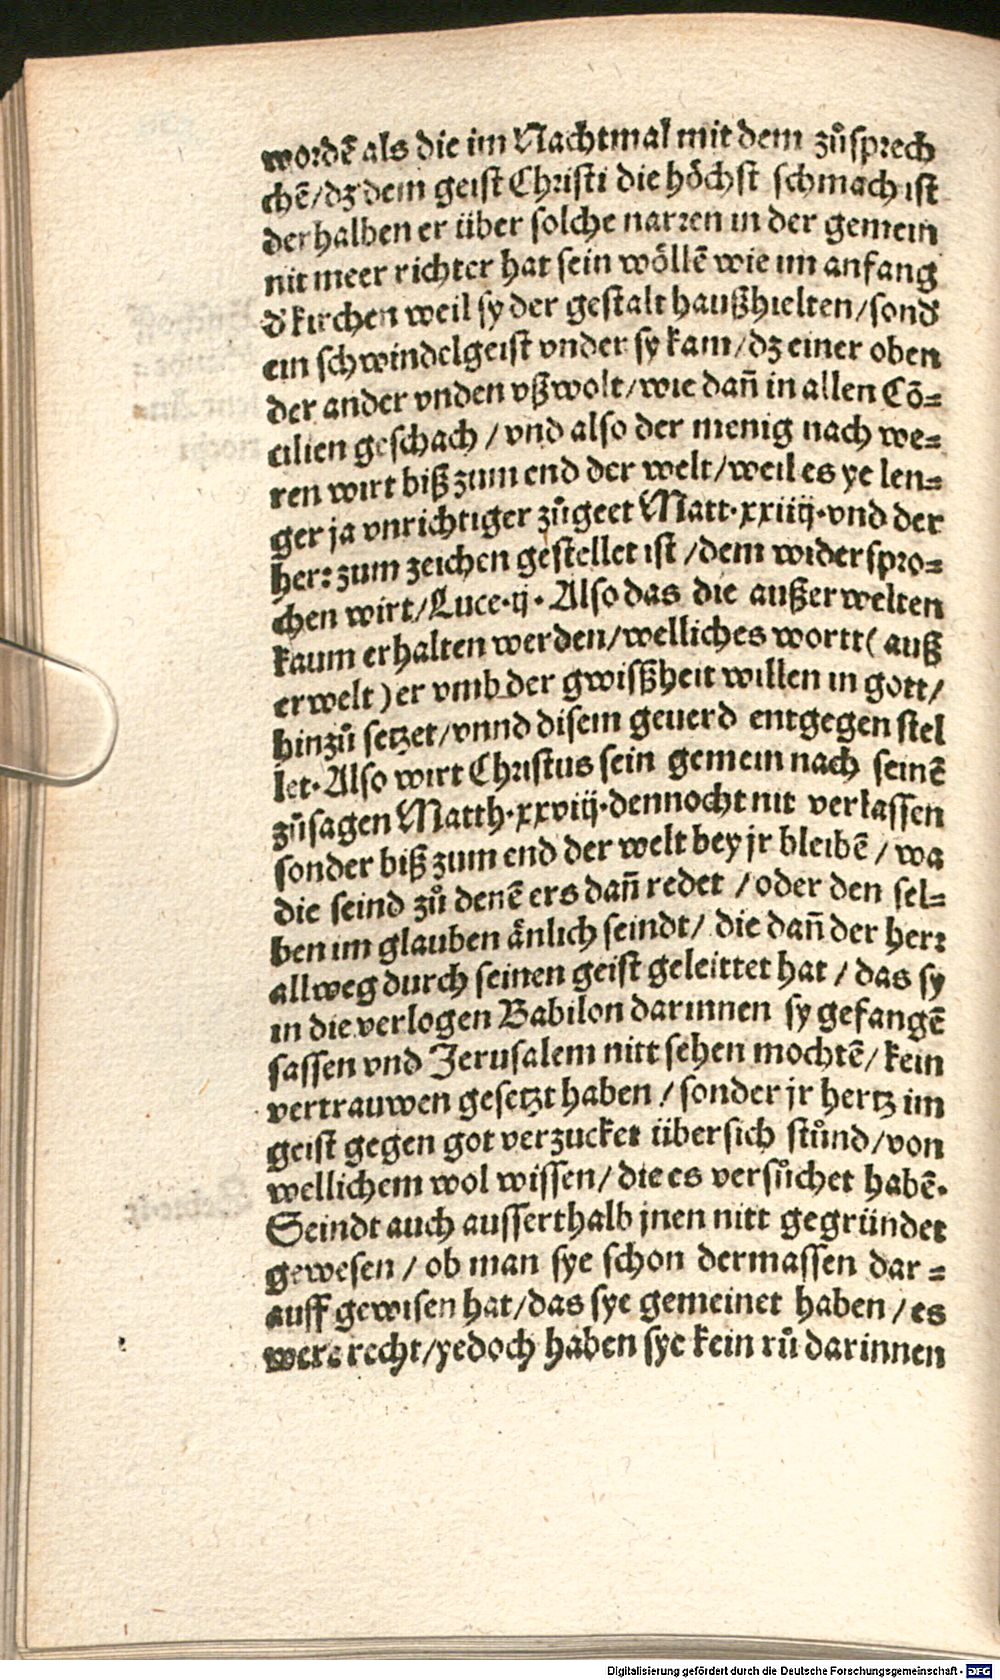 wordē als die im Nachtmal mit dem zůsprech
chē/dz dem geist Christi die höchst schmach ist
derhalben er über solche narren in der gemein
nit meer richter hat sein wöllē wie im anfang
d' kirchen weil sy der gestalt haußhielten/sond'
ein schwindelgeist vnder sy kam/dz einer oben
der ander vnden vßwolt/wie dañ in allen Cō=
cilien geschach/vnd also der menig nach we=
ren wirt biß zum end der welt/weil es ye len=
ger ja vnrichtiger zůgeet Matt.xxiiij.vnd der
herr zum zeichen gestellet ist/dem widerspro=
chen wirt/Luce.ij. Also das die außerwelten
kaum erhalten werden/welliches wortt(auß
erwelt) er vmb der gwißheit willen in gott/
hinzů setzet/vnnd disem geuerd entgegen stel
let. Also wirt Christus sein gemein nach seinē
zůsagen Matth.xxviij.dennocht nit verlassen
sonder biß zum end der welt bey jr bleibē/wa
die seind zů denē ers dañ redet/oder den sel=
ben im glauben änlich seindt/die dañ der herr
allweg durch seinen geist geleittet hat/das sy
in die verlogen Babilon darinnen sy gefangē
sassen vnd Jerusalem nitt sehen mochtē/kein
vertrauwen gesetzt haben/sonder jr hertz im
geist gegen got verzucket übersich stůnd/von
wellichem wol wissen/die es versůchet habē.
Seindt auch ausserthalb jnen nitt gegründet
gewesen/ob man sye schon dermassen dar=
auff gewisen hat/das sye gemeinet haben/es
were recht/yedoch haben sye kein rů darinnen
Digitalisierung gefördert durch die Deutsche Forschungsgemeinschaft - DFG